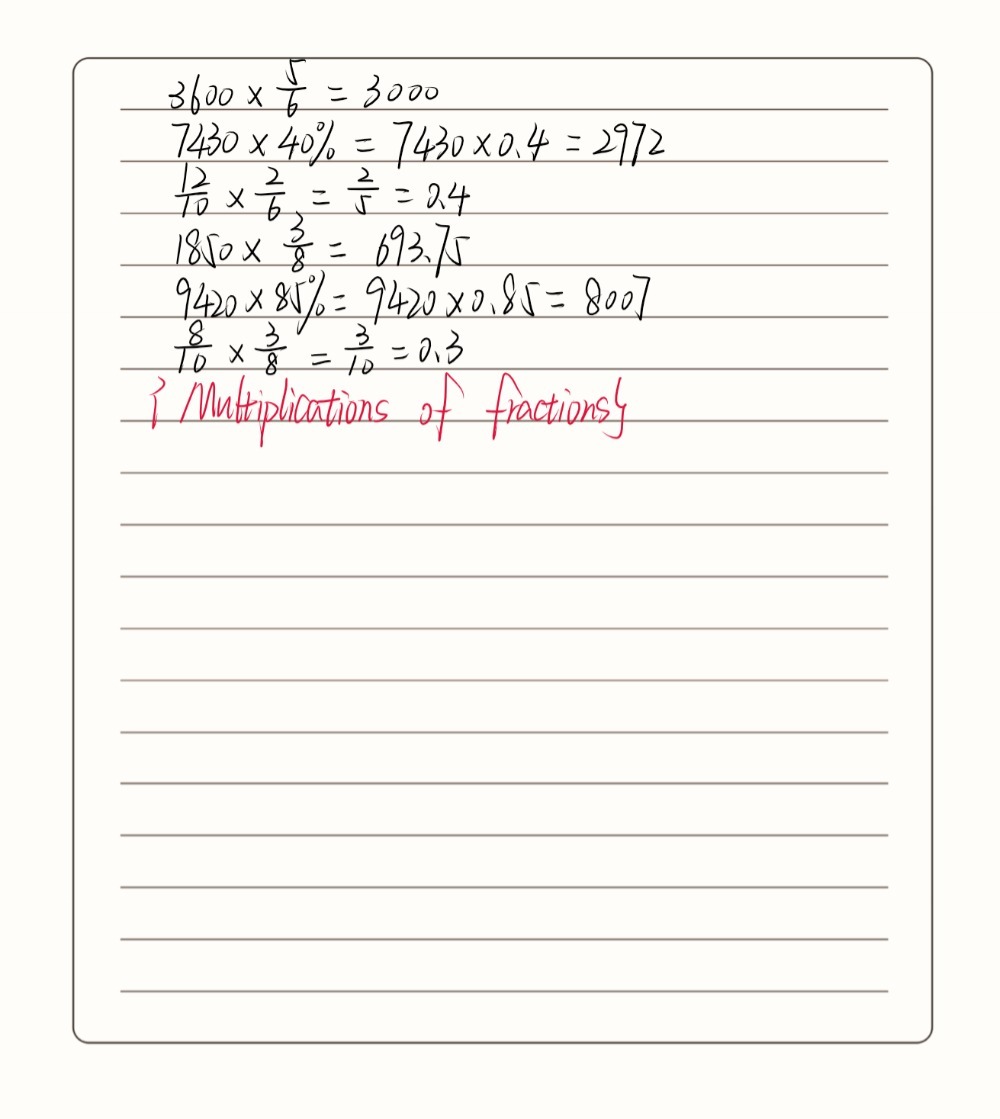 3600 × 5/6 = 3000
7430 × 40% = 7430 × 0.4 = 2972
12/10 × 2/6 = 2/5 = 0.4
1850 × 3/8 = 693.75
9420 × 85% = 9420 × 0.85 = 8007
8/10 × 3/8 = 3/10 = 0.3
{ Multiplications of fractions}